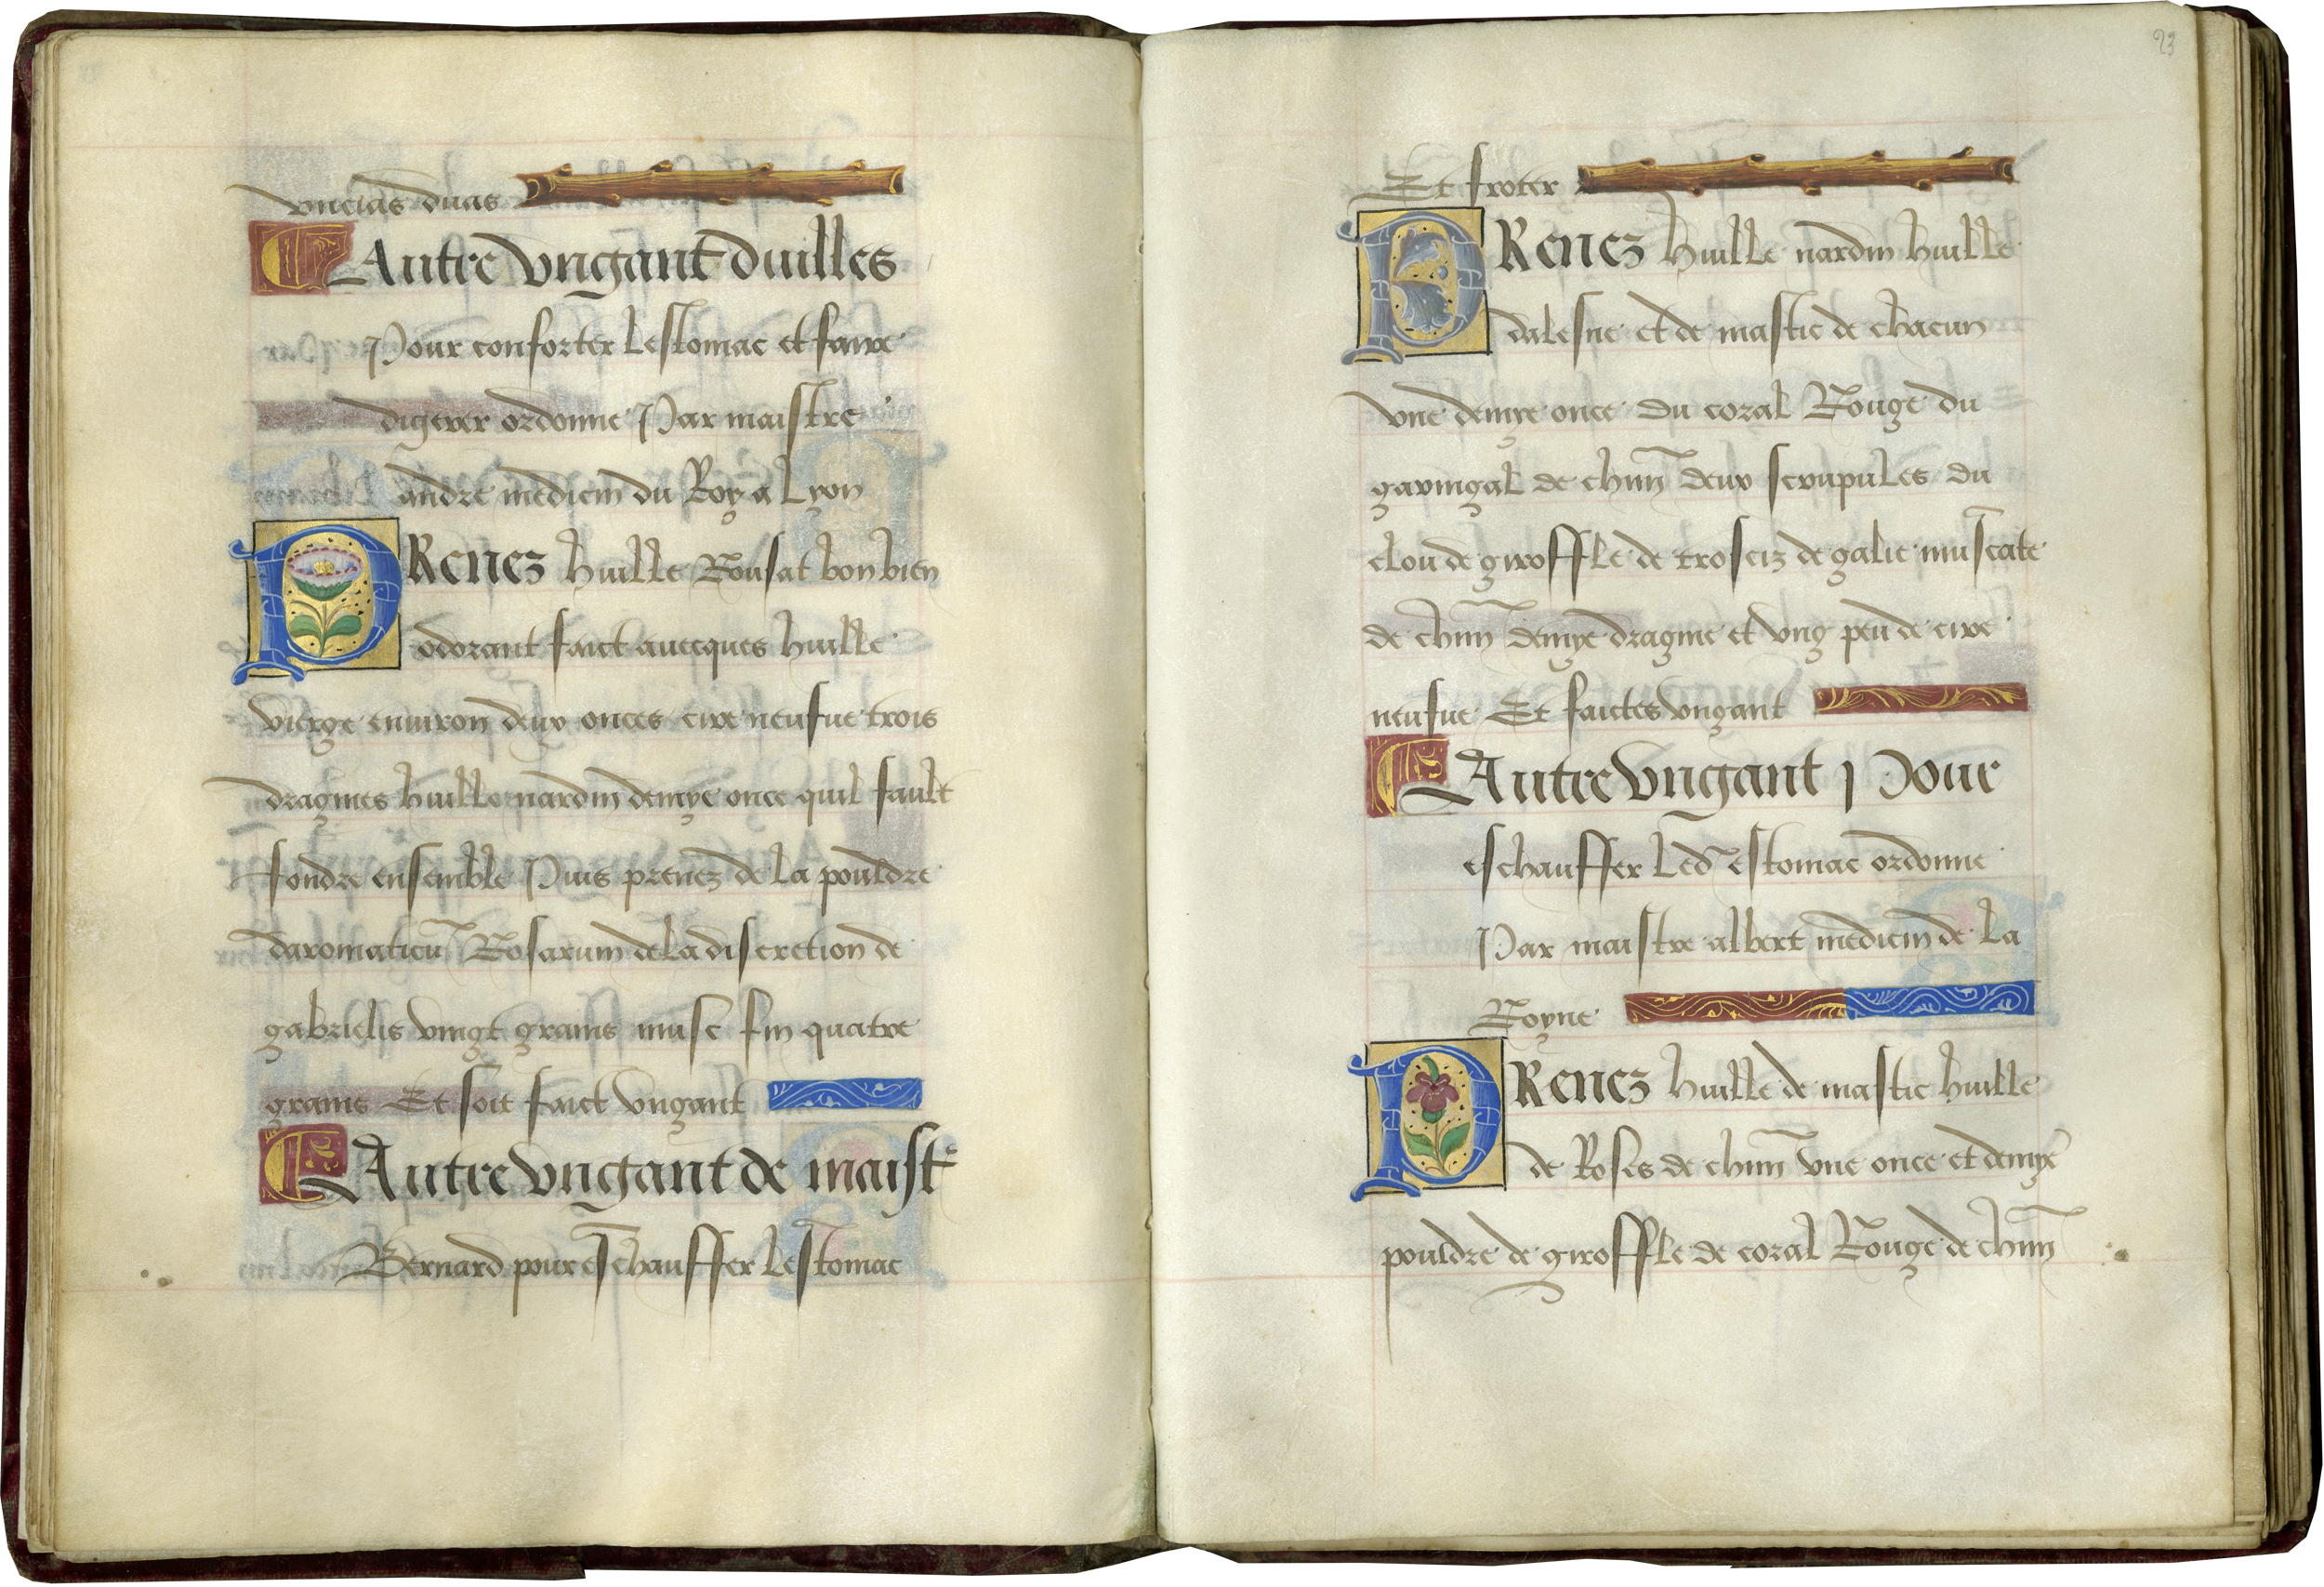 vncias duas
Autre vngant duilles
Pour conforter lestomac et faire
digerer ordonne Par maistre
andre medicin du Roy a Lyon
PRenez huille Rousat bon bien
odorant faict auecques huille
vierge enuiron deux onces cire neufue trois
dragmes huille nardin demye once quil fault
fondre ensemble Puis prenez de la pouldre
daromaticu͂ Rosarum de la discretion de
gabrielis vingt grains musc fin quatre
grains Et soit faict vngant
Autre vngant de maist͛
Bernard pour eschauffer lestomac
23
Et froter
PRenez huille nardin huille
dalesne et de mastic de chacun
vne demye once du coral Rouge du
garingal de chun͂ deux scrupules du
clou de giroffle de trosciz de galie muscate
de chun͂ demye dragme et vng peu de cire
neufue Et faictes vngant
Autre vngant Pour
eschauffer led͂ estomac ordonne
Par maistre albert medicin de la
Royne
PRenez huille de mastic huille
de Roses de chun͂ vne once et demye
pouldre de giroffle de coral Rouge de chun͂